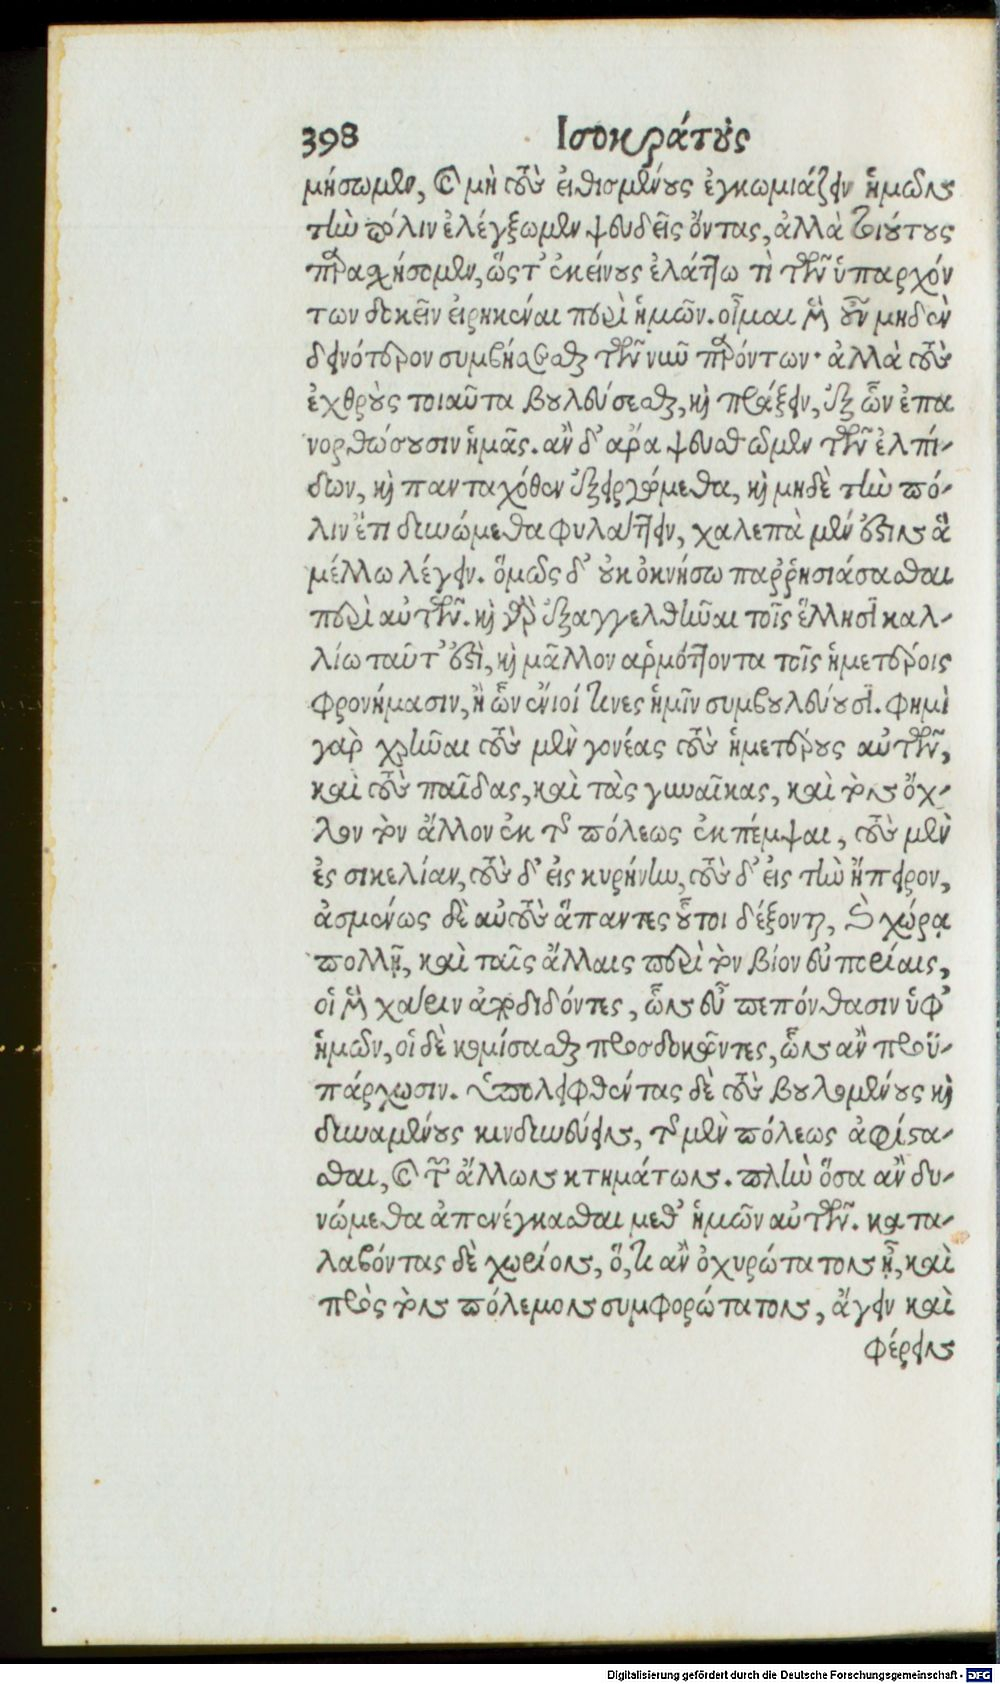 398 Ισοκράτους
μήσωμεν, καὶ μὴ τοὺς εἰθισμένους ἐγκωμιάζειν ἡμᾶς
τὴν πόλιν ἐλέγξωμεν ψευδεῖς ὄντας, ἀλλὰ τοιούτους
παραχήσομεν, ὥστ' ἐκείνους ἐλάττω τὶ τῶν ὑπαρχόν
των δοκεῖν εἰρηκέναι περὶ ἡμῶν. οἶμαι μὲν οὖν μηδὲν
δεινότερον συμβήσεσθαι τῶν νῦν παρόντων· ἀλλὰ τοὺς
ἐχθροὺς τοιαῦτα βουλεύσεσθαι, καὶ πράξειν, ἐξ ὧν ἐπα
νορθώσουσιν ἡμᾶς. ἂν δ' ἄρα ψευσθῶμεν τῶν ἐλπί-
δων, καὶ πανταχόθεν ἐξειργώμεθα, καὶ μηδὲ τὴν πό-
λιν ἔτι δυνώμεθα φυλάττειν, χαλεπὰ μέν ἐστιν ἃ
μέλλω λέγειν. ὅμως δ' οὐκ ὀκνήσω παῤῥησιάσασθαι
περὶ αὐτῶν. καὶ γὰρ ἐξαγγελθῆναι τοῖς ἕλλησι καλ-
λίω ταῦτ' ἐστὶ, καὶ μᾶλλον ἁρμόττοντα τοῖς ἡμετέροις
φρονήμασιν, ἢ ὧν ἔνιοί τινες ἡμῖν συμβουλεύουσι. φημὶ
γὰρ χρῆναι τοὺς μὲν γονέας τοὺς ἡμετέρους αὐτῶν,
καὶ τοὺς παῖδας, καὶ τὰς γυναῖκας, καὶ τὸν ὄχ-
λον τὸν ἄλλον ἐκ τῆς πόλεως ἐκπέμψαι, τοὺς μὲν
ἐς σικελίαν, τοὺς δ' εἰς κυρήνην, τοὺς δ' εἰς τὴν ἤπειρον,
ἀσμένως δὲ αὐτοὺς ἅπαντες οὗτοι δέξονται, καὶ χώρᾳ
πολλῇ, καὶ ταῖς ἄλλαις περὶ τὸν βίον εὐπορίαις,
οἱ μὲν χάριν ἀποδιδόντες, ὧν εὖ πεπόνθασιν ὑφ'
ἡμῶν, οἱ δὲ κομίσασθαι προσδοκῶντες, ὧν ἂν προϋ-
πάρχωσιν. ὑπολειφθέντας δὲ τοὺς βουλομένους καὶ
δυναμένους κινδυνεύειν, τῆς μὲν πόλεως ἀφίστα-
σθαι, καὶ τῶν ἄλλων κτημάτων. πλὴν ὅσα ἂν δυ-
νώμεθα ἀπενέγκασθαι μεθ' ἡμῶν αὐτῶν. κατα-
λαβόντας δὲ χωρίον, ὅ,τι ἂν ὀχυρώτατον ᾖ, καὶ
πρὸς τὸν πόλεμον συμφορώτατον, ἄγειν καὶ
φέρειν
Digitalisierung gefördert durch die Deutsche Forschungsgemeinschaft - DFG